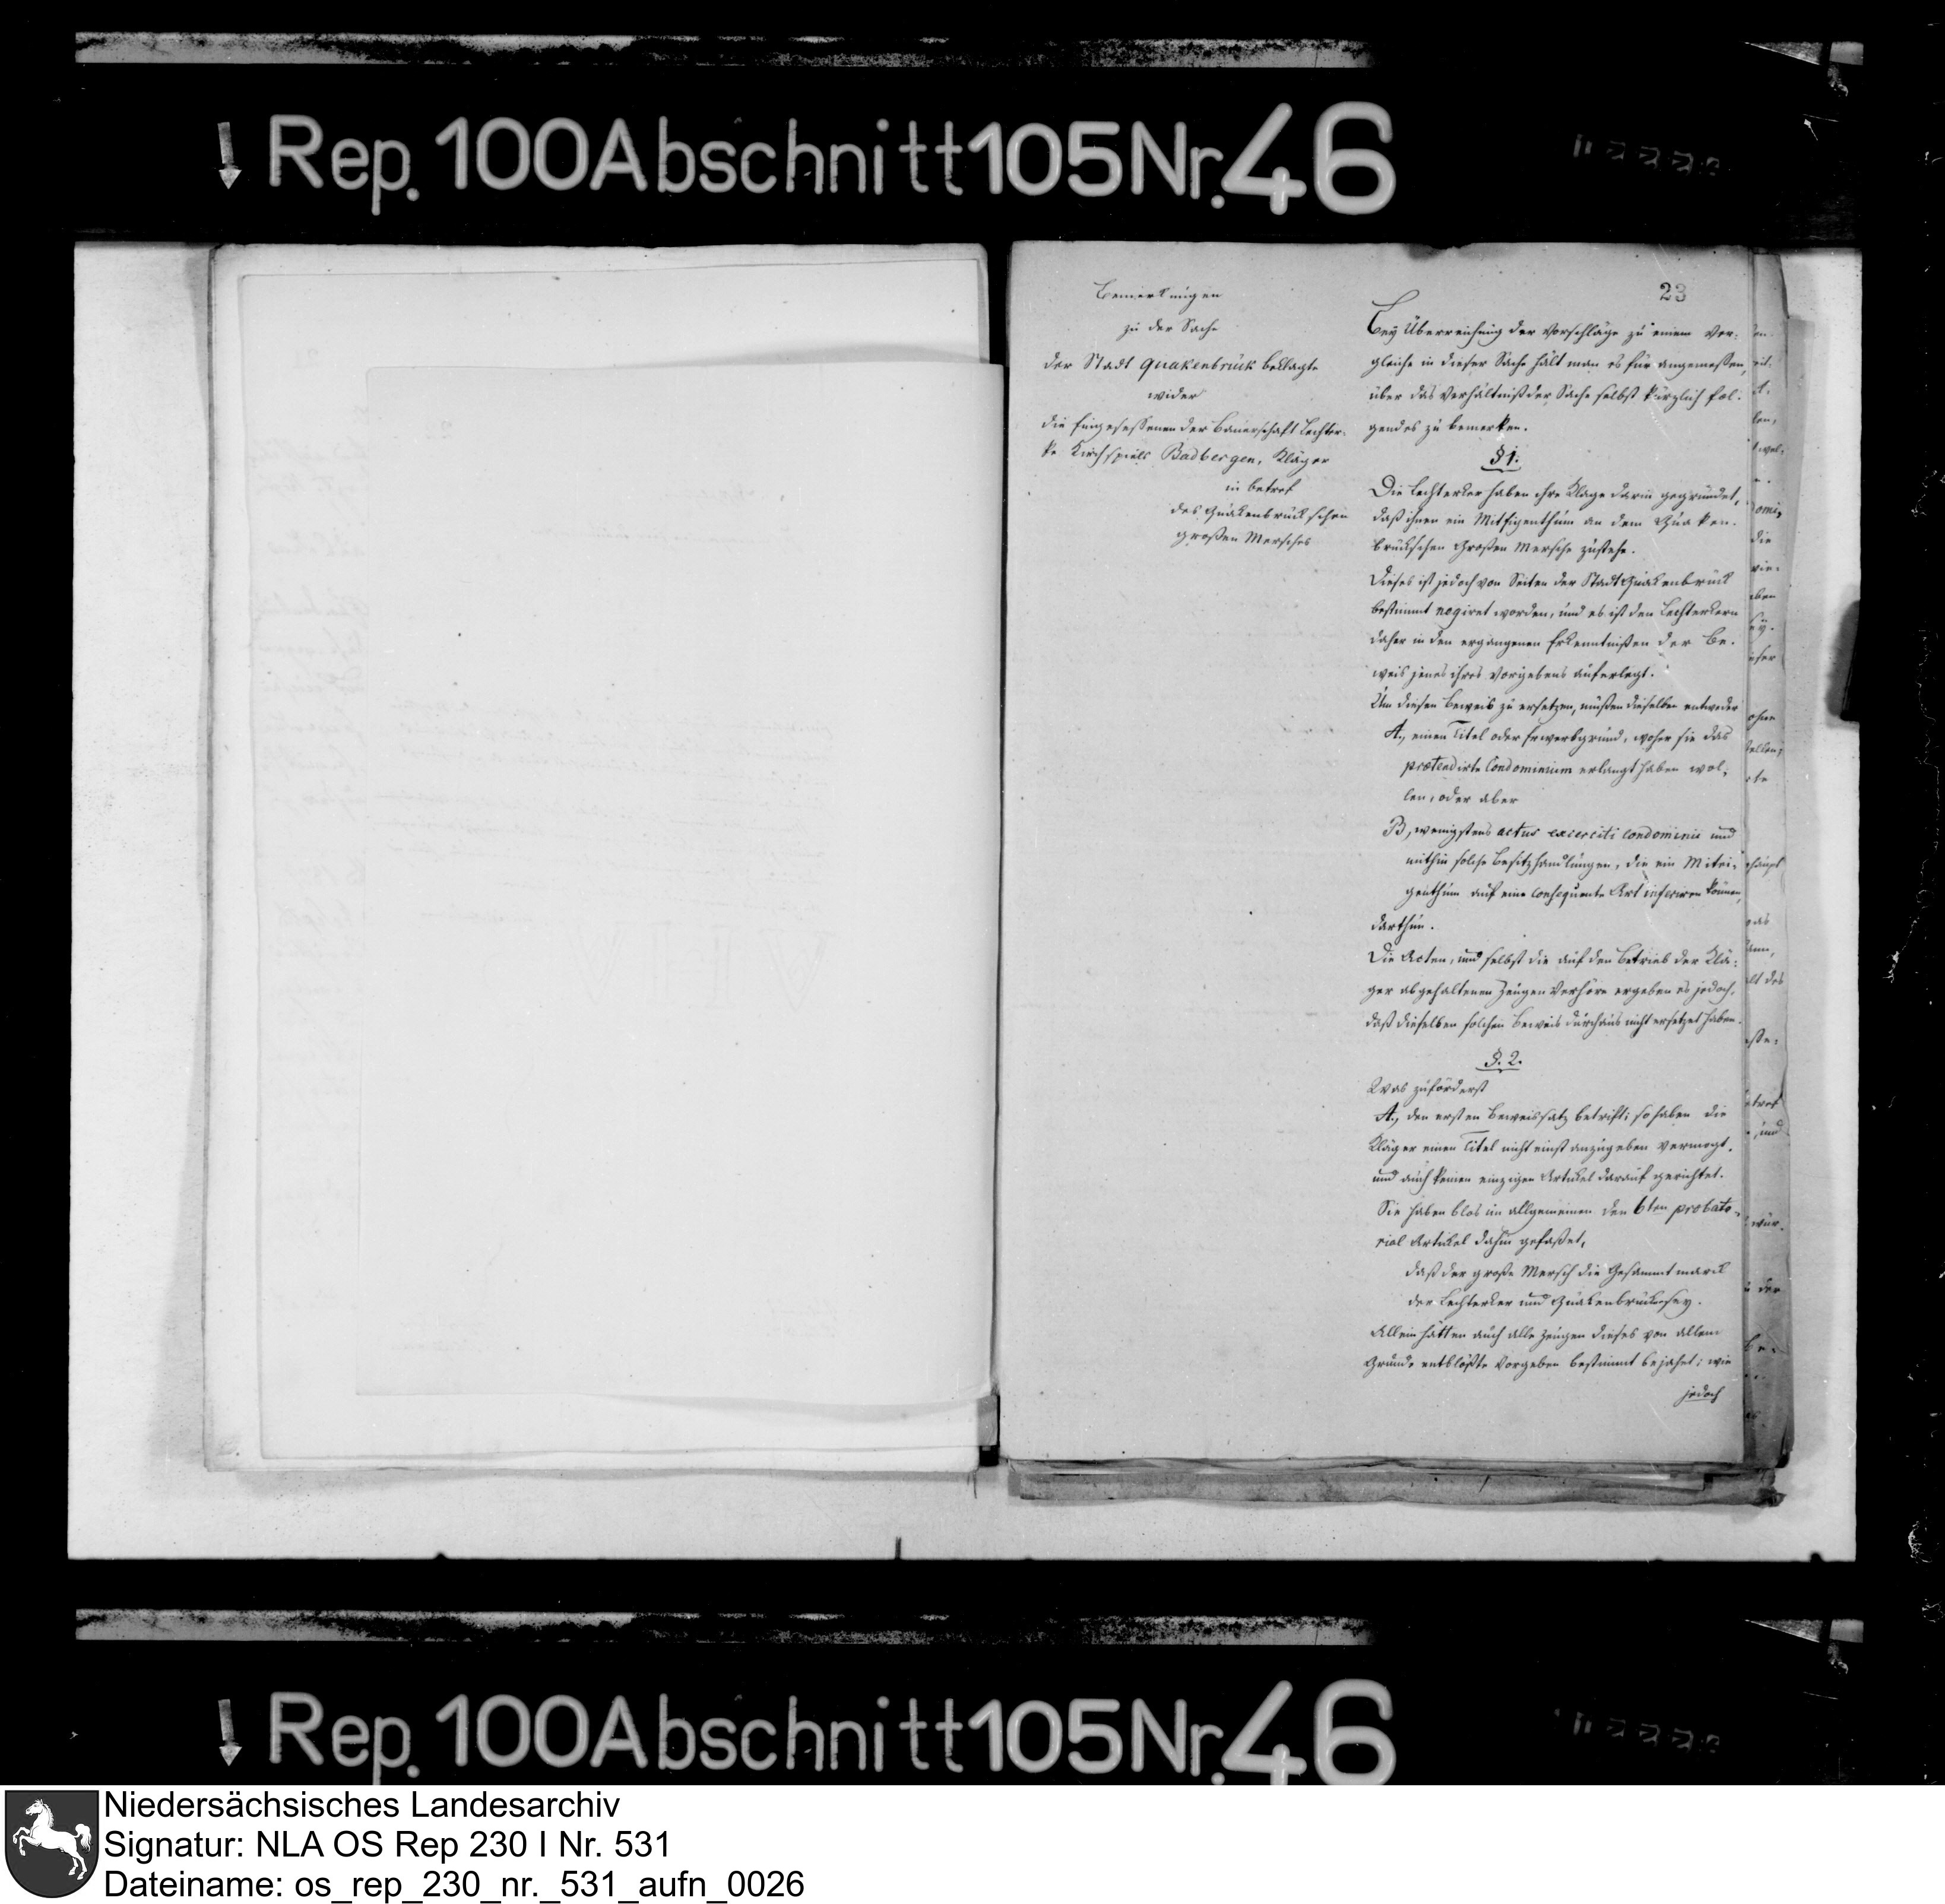 Rep. 100 Abschnitt 105 Nr. 46
23
Bemerkungen
zu der Sache
der Stadt Quakenbrück Beklagte
wider
die Eingesessenen der Bauerschaft Lechter-
ke Kirchspiels Badbergen, Kläger
in betref
des Quakenbrückschen
großen Mersches
Bey Überreichung der Vorschläge zu einem Ver-
gleiche in dieser Sache hält man es für angemessen,
über das Verhältniß der Sache selbst kürzlich fol-
gendes zu bemerken.
§ 1.
Die Lechterker haben ihre Klage darin gegründet,
daß ihnen ein Miteigenthum an dem Quaken-
brückschen großen Mersche zustehe.
Dieses ist jedoch von Seiten der Stadt Quakenbrück
bestimmt negiret worden, und es ist den Lechterkern
daher in den ergangenen Erkenntnißen der Be-
weis jenes ihres Vorgebens auferlegt.
Um diesen Beweis zu ersetzen, müßen dieselben entweder
A., einen Titel oder Erwerbgrund, woher sie das
prætendirte Condominium erlangt haben wol-
len, oder aber
B, wenigstens actus exerciti condominii und
mithin solche Besitzhandlungen, die ein Mitei-
genthum auf eine consequente Art inferiren können,
darthun.
Die Acten, und selbst die auf den Betrieb der Klä-
ger abgehaltenen Zeugen Verhöre ergeben es jedoch,
daß dieselben solchen Beweis durchaus nicht ersetzet haben.
§. 2.
Was zuförderst
A., den ersten Beweissatz betrift; so haben die
Kläger einen Titel nicht einst anzugeben vermogt,
und auch keinen einzigen Artickel darauf gerichtet.
Sie haben blos im allgemeinen den 6ten probato-
rial Artickel dahin gefaßet,
daß der große Mersch die Gesammtmarck
der Lechterker und Quakenbrücker sey.
Allein hätten auch alle Zeugen dieses von allem
Grunde entblößte Vorgeben bestimmt bejahet; wie
jedoch
Rep. 100 Abschnitt 105 Nr. 46
Niedersächsisches Landesarchiv
Signatur: NLA OS Rep 230 I Nr. 531
Dateiname: os_rep_230_nr._531_aufn_0026